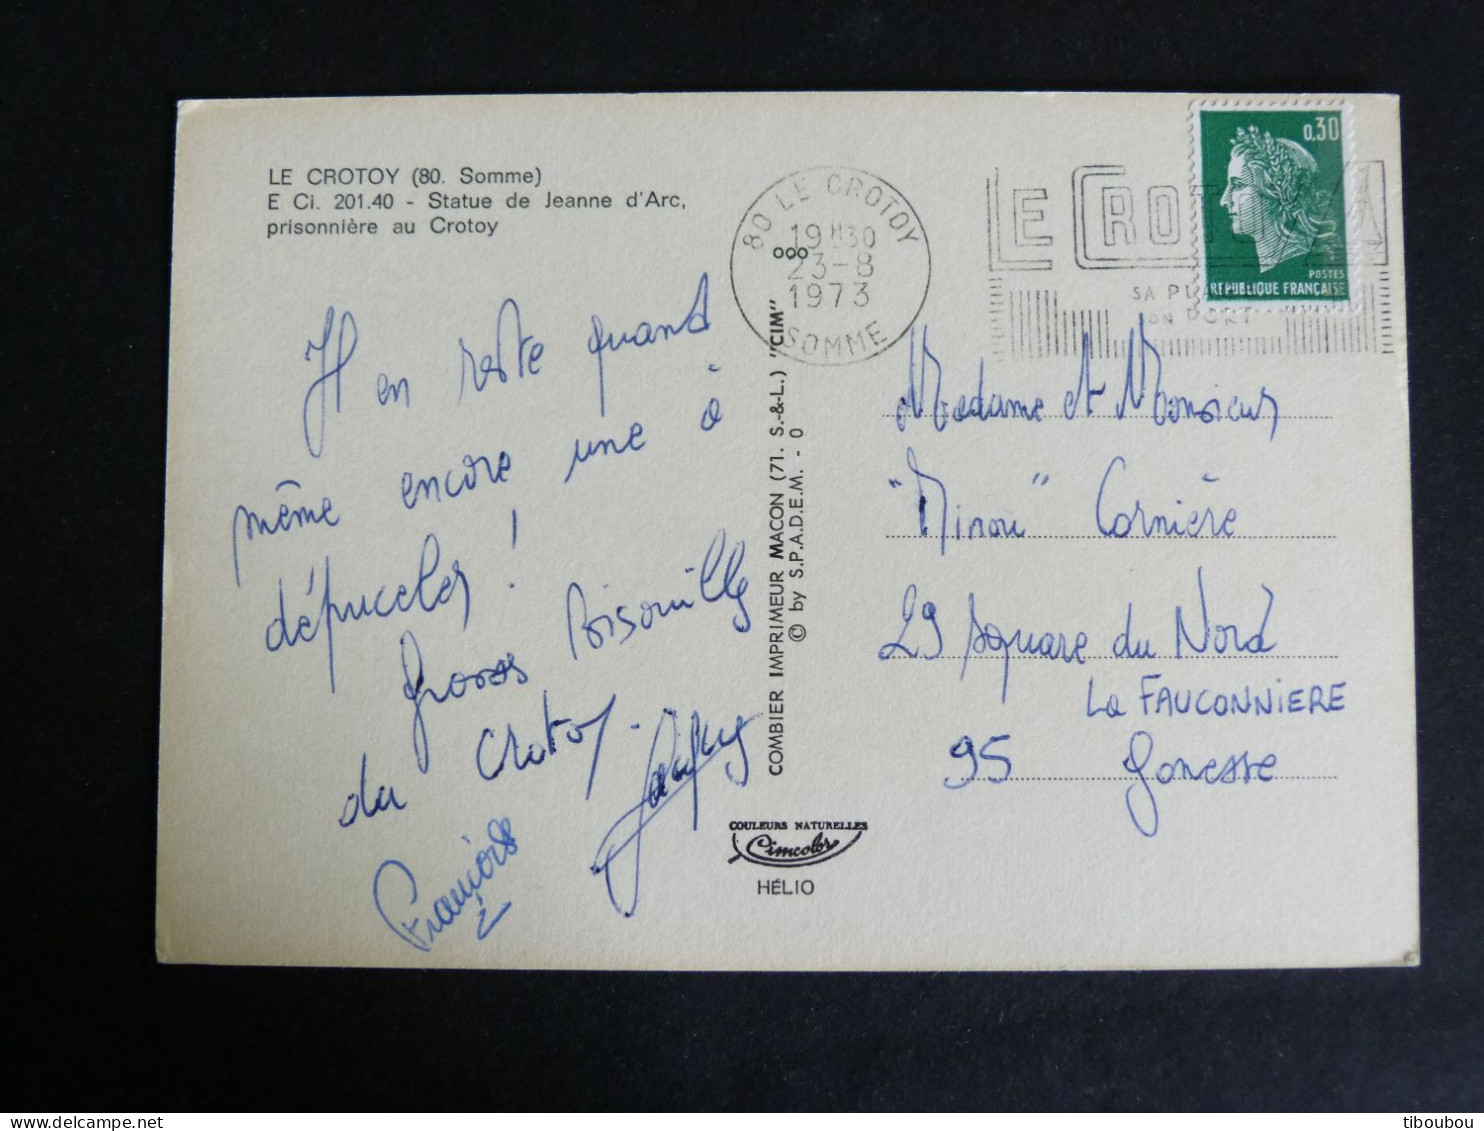 LE CROTOY (80. Somme)
E Ci. 201.40 - Statue de Jeanne d'Arc,
prisonnière au Crotoy
Il en reste quand
même encore une à
dépuceler !
Grosses
du Crotoy.
François
COMBIER IMPRIMEUR MACON (71. S.-&-L.) "CIM"
© by S.P.A.D.E.M. - O
COULEURS NATURELLES
Cimcolor
HÉLIO
80 LE CROTOY
19H30
23-8
1973
SOMME
LE CROTOY
SA
SON PORT
0,30
POSTES
REPUBLIQUE FRANÇAISE
Madame et Monsieur
"Minou" Cornière
29 Square du Nord
La FAUCONNIERE
95 Gonesse
tiboubou